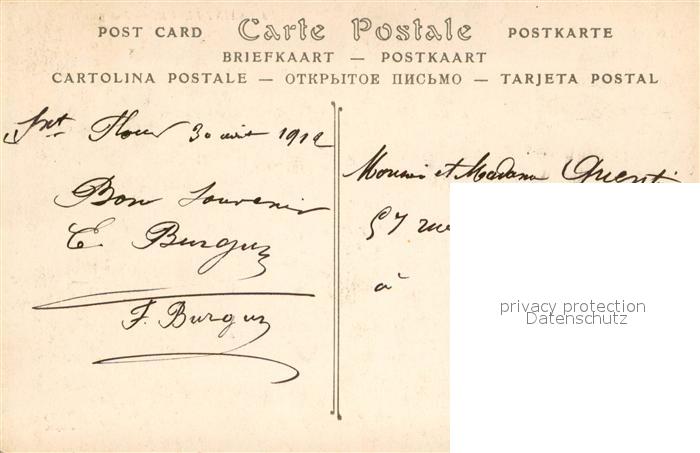 POST CARD Carte Postale POSTKARTE
BRIEFKAART — POSTKAART
CARTOLINA POSTALE — ОТКРЫТОЕ ПИСЬМО — TARJETA POSTAL
St Flour 30 août 1912
Bon Souvenir
E. Burguz
F. Burguz
Monsieur et Madame
57 rue
à
privacy protection
Datenschutz